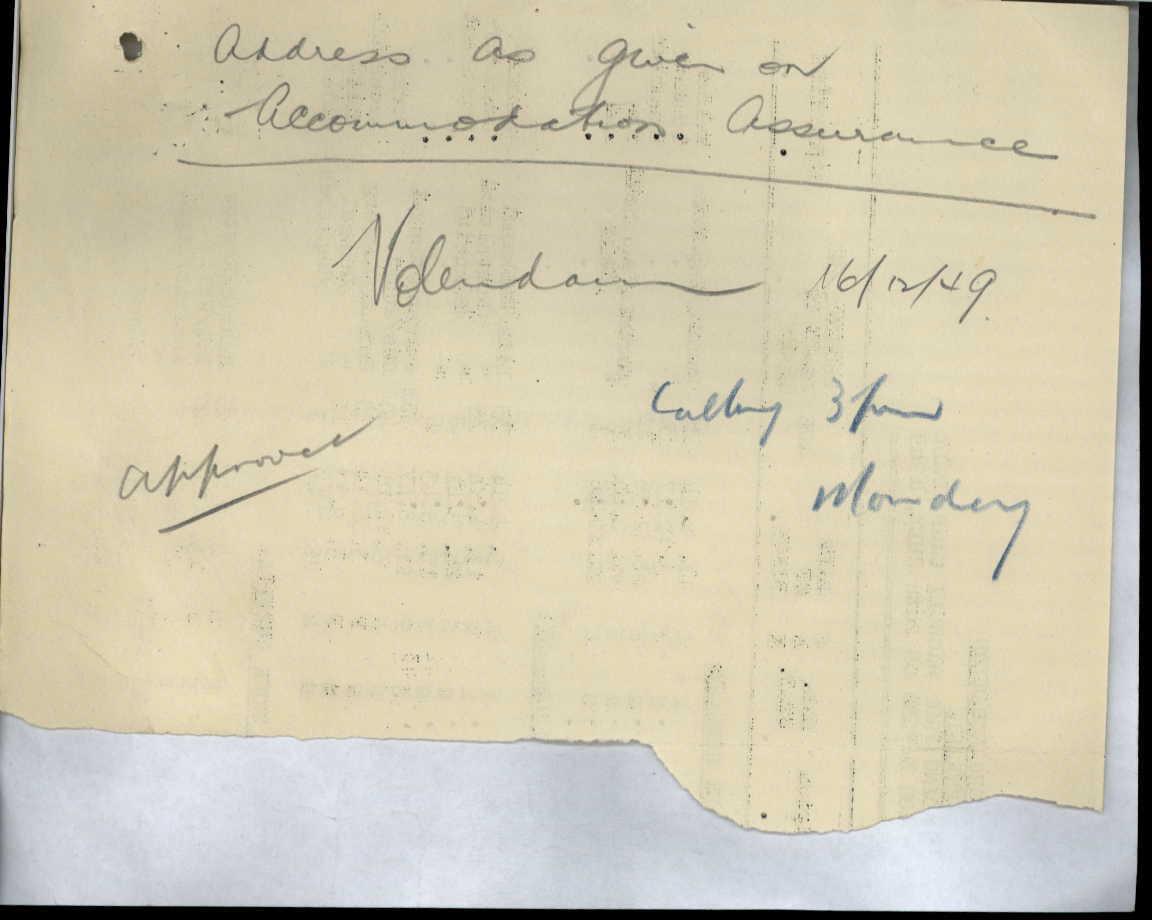 Address as given on
Accommodation Assurance
Volendam 16/12/49.
Calling 3pm
Monday
approved